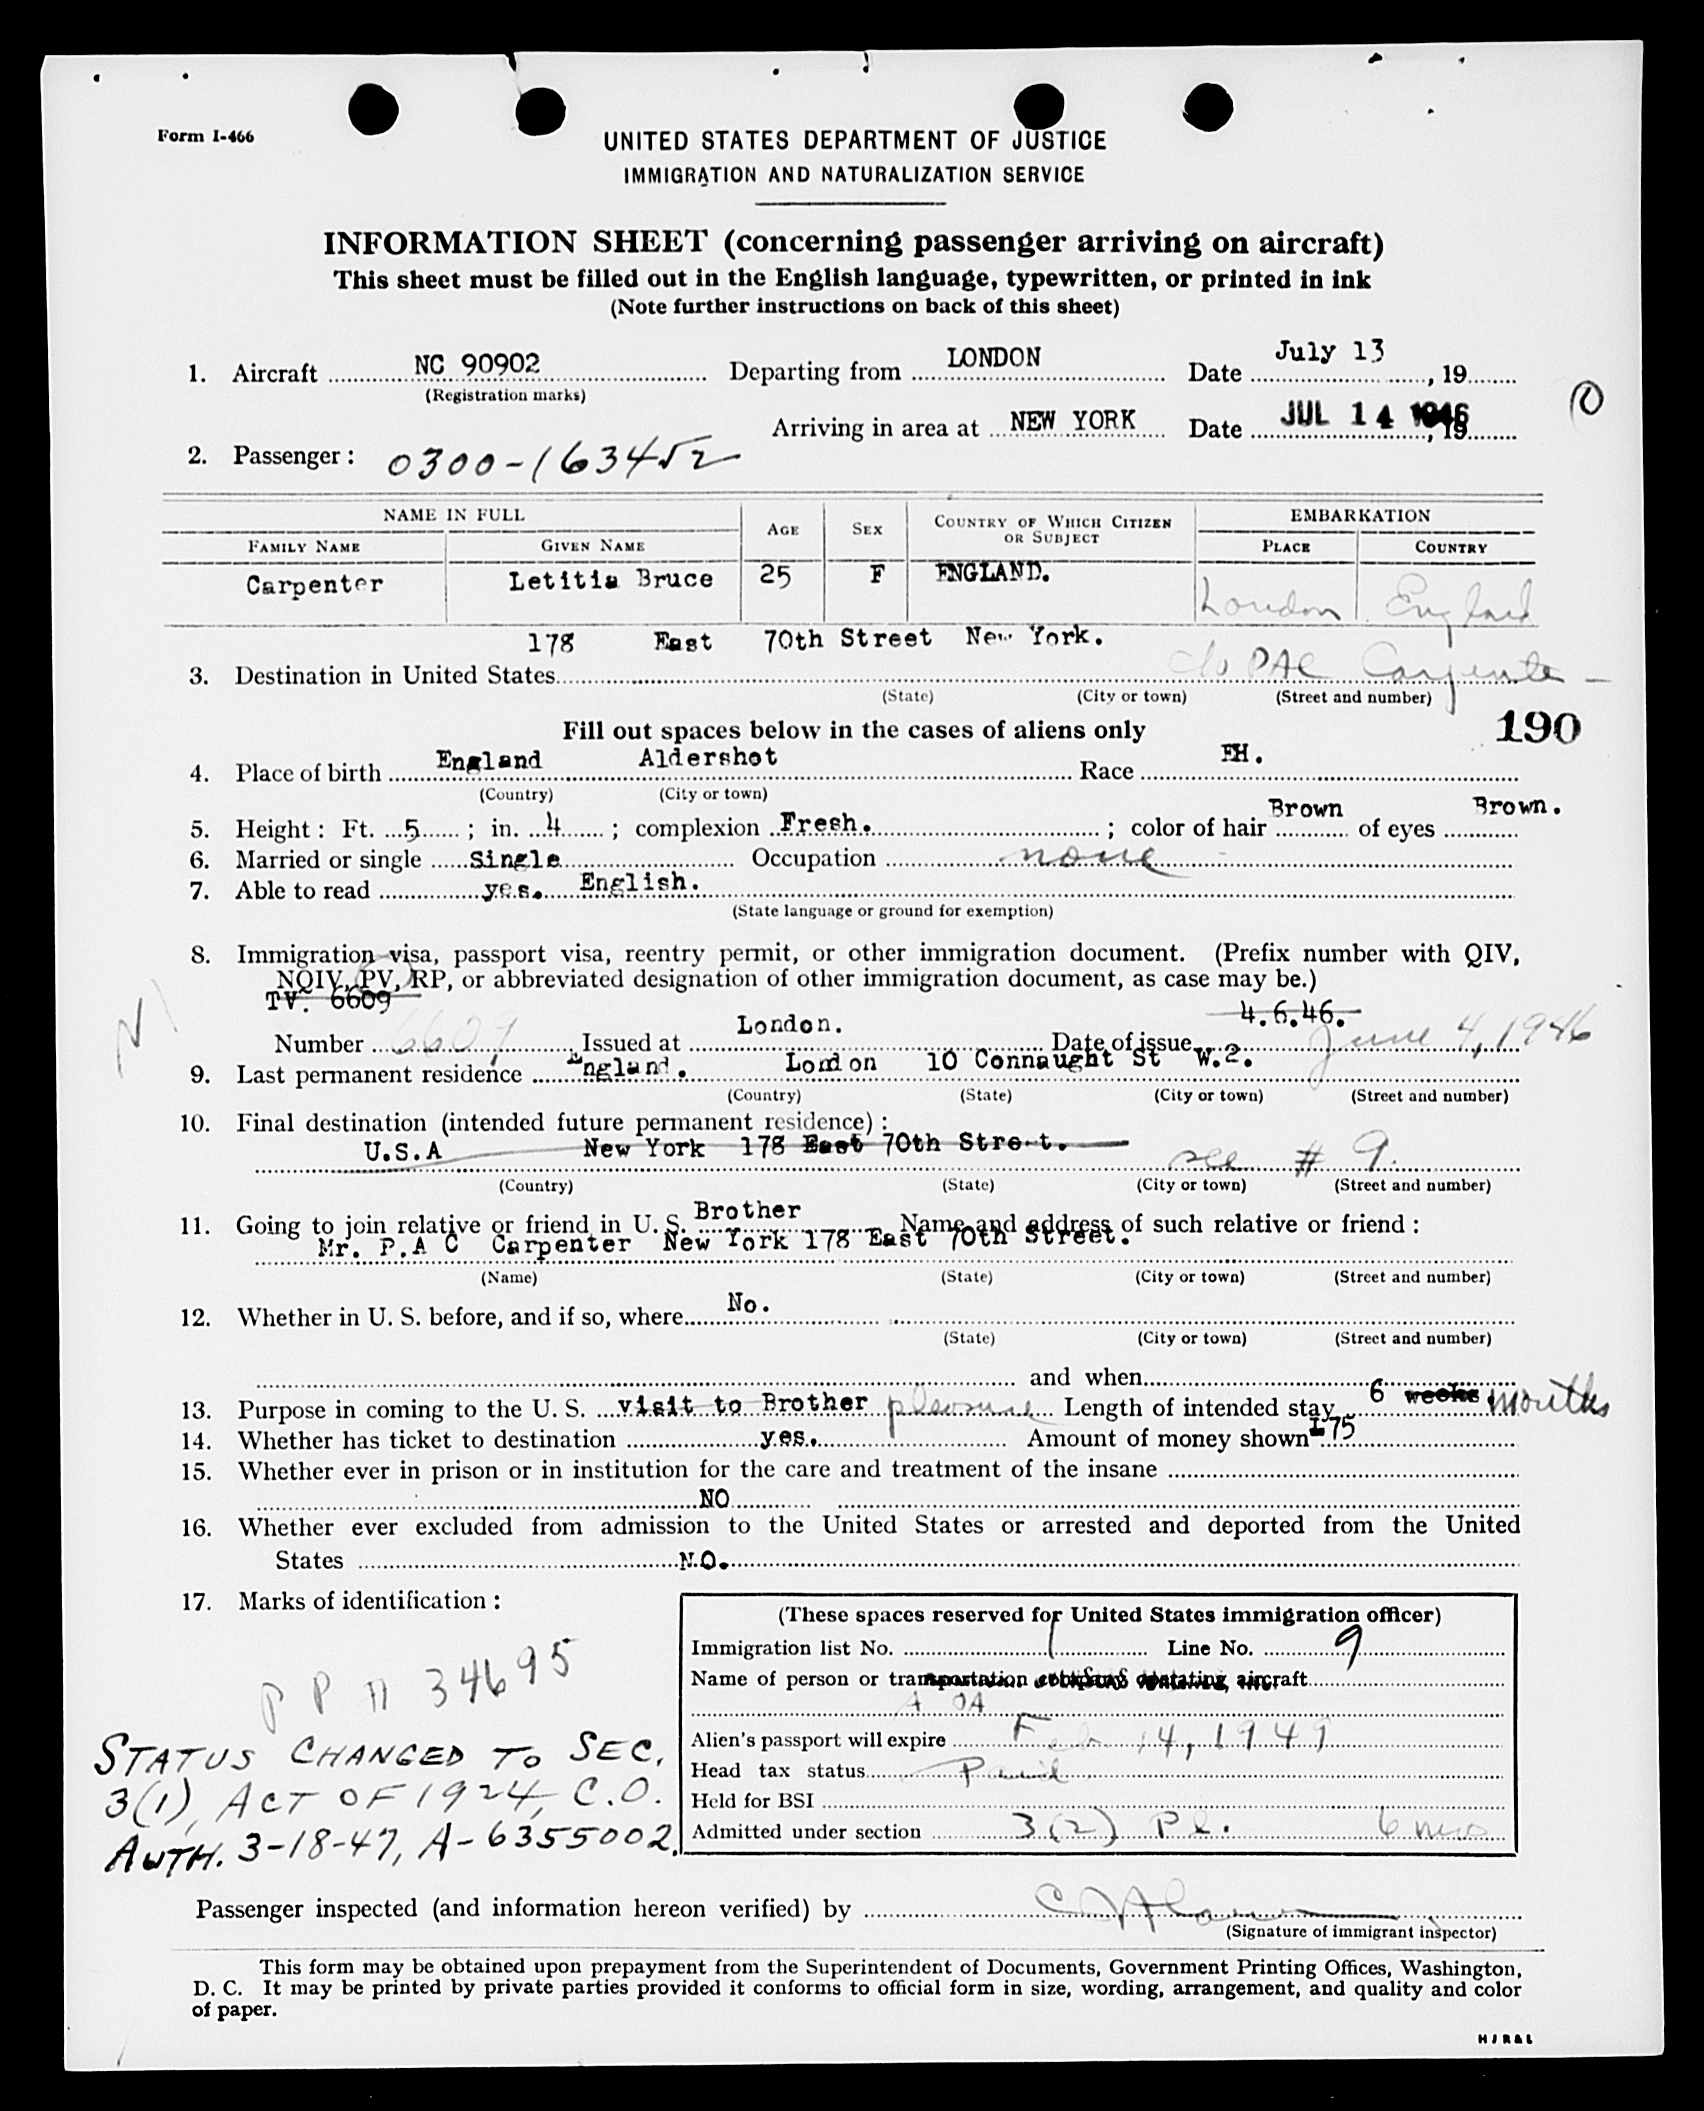 Form I-466
UNITED STATES DEPARTMENT OF JUSTICE
IMMIGRATION AND NATURALIZATION SERVICE
INFORMATION SHEET (concerning passenger arriving on aircraft)
This sheet must be filled out in the English language, typewritten, or printed in ink
(Note further instructions on back of this sheet)
1. Aircraft NC 90902 Departing from LONDON Date July 13, 19
(Registration marks)
Arriving in area at NEW YORK Date JUL 14 1946, 19
2. Passenger: 0300-163452
NAME IN FULL AGE SEX COUNTRY OF WHICH CITIZEN OR SUBJECT EMBARKATION
FAMILY NAME GIVEN NAME PLACE COUNTRY
Carpenter Letitia Bruce 25 F ENGLAND. London England
178 East 70th Street New York.
3. Destination in United States c/o PAC Carpenter
(State) (City or town) (Street and number)
Fill out spaces below in the cases of aliens only 190
4. Place of birth England Aldershot Race EH.
(Country) (City or town)
5. Height: Ft. 5; in. 4; complexion Fresh.; color of hair Brown of eyes Brown.
6. Married or single Single Occupation none
7. Able to read yes. English.
(State language or ground for exemption)
8. Immigration visa, passport visa, reentry permit, or other immigration document. (Prefix number with QIV,
NQIV, PV, RP, or abbreviated designation of other immigration document, as case may be.)
TV. 6609 4.6.46.
Number 6609 Issued at London. Date of issue June 4, 1946
9. Last permanent residence England. London 10 Connaught St W.2.
(Country) (State) (City or town) (Street and number)
10. Final destination (intended future permanent residence):
U.S.A New York 178 East 70th Street. see # 9.
(Country) (State) (City or town) (Street and number)
11. Going to join relative or friend in U. S. Brother Name and address of such relative or friend:
Mr. P.A C Carpenter New York 178 East 70th Street.
(Name) (State) (City or town) (Street and number)
12. Whether in U. S. before, and if so, where No.
(State) (City or town) (Street and number)
and when
13. Purpose in coming to the U. S. visit to Brother pleasure Length of intended stay 6 weeks months
14. Whether has ticket to destination yes. Amount of money shown £75
15. Whether ever in prison or in institution for the care and treatment of the insane
NO
16. Whether ever excluded from admission to the United States or arrested and deported from the United
States NO.
17. Marks of identification:
(These spaces reserved for United States immigration officer)
Immigration list No. 1 Line No. 9
Name of person or transportation company operating aircraft
A OA
PP # 34695
Alien's passport will expire Feb 14, 1949
Head tax status Paid
Held for BSI
Admitted under section 3(2) Pl. 6 mos
STATUS CHANGED TO SEC.
3(1), ACT OF 1924, C.O.
AUTH. 3-18-47, A-6355002.
Passenger inspected (and information hereon verified) by
(Signature of immigrant inspector)
This form may be obtained upon prepayment from the Superintendent of Documents, Government Printing Offices, Washington,
D. C. It may be printed by private parties provided it conforms to official form in size, wording, arrangement, and quality and color
of paper.